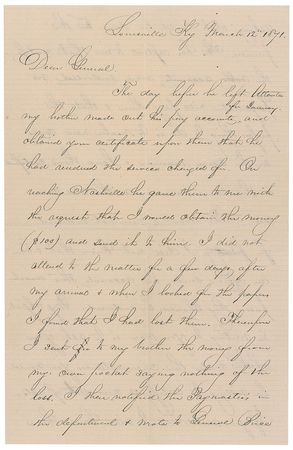 Louisville Ky March 12th 1871.
Dear General.
The day before he left Atlanta
for
my brother made out his pay accounts, and
obtained your certificate upon them that he
had rendered the service charged for. On
reaching Nashville he gave them to me with
the request that I would obtain the money
($100) and send it to him. I did not
attend to the matter for a few days, after
my arrival & when I looked for the papers
I found that I had lost them. Therefore
I sent to my brother the money from
my own pocket saying nothing of the
loss. I then notified the Paymasters in
the department & wrote to General Brice